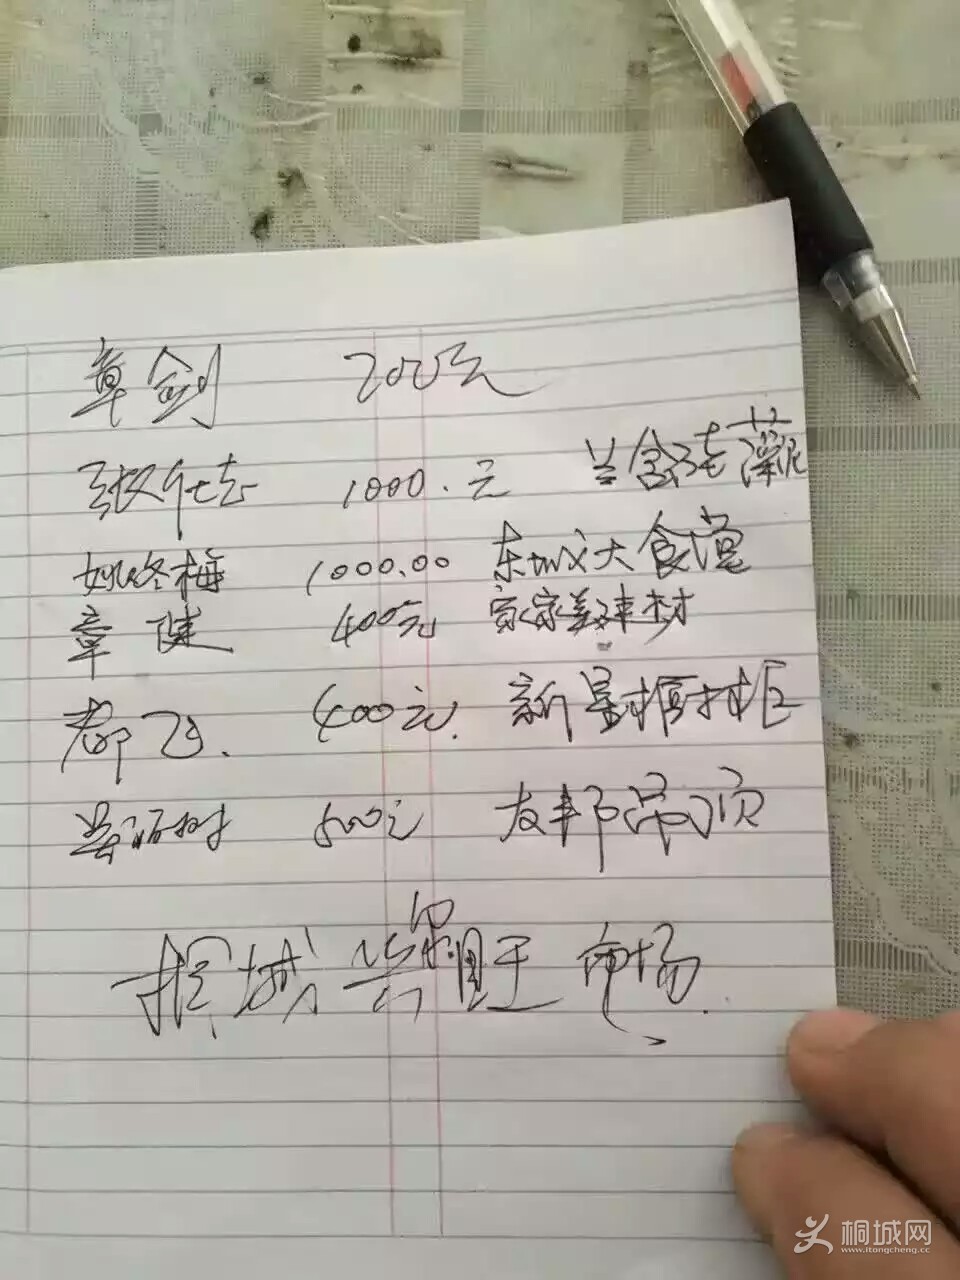 章剑 200元
张仕志 1000.元 兰舍硅藻泥
姚冬梅 1000.00 东城大食堂
章健 400元 家家美建材
都飞. 400元. 新星橱柜
500元 友邦吊顶
桐城 市场.
桐城网
www.itongcheng.cc